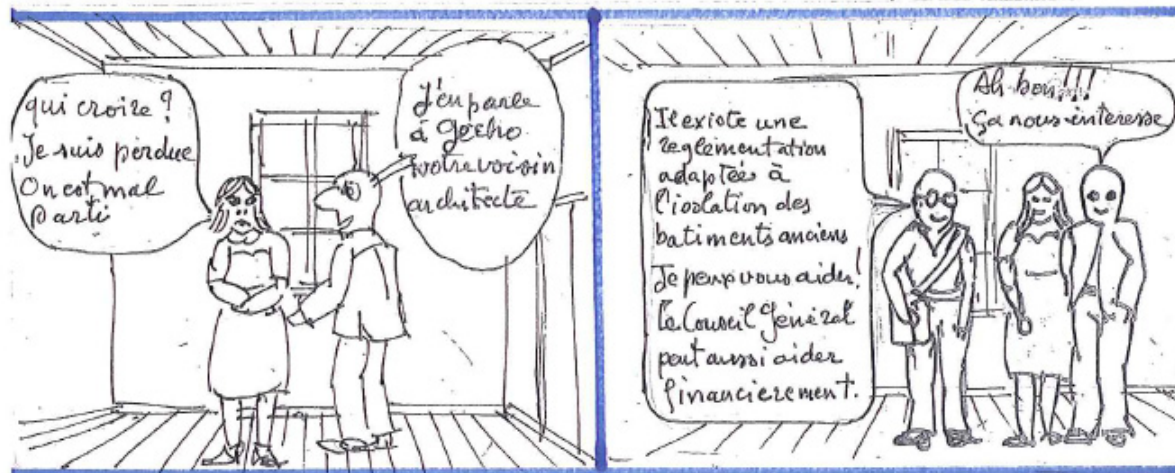 qui croire ?
Je suis perdue
On est mal
parti
J'en parle
à gecko
votre voisin
architecte
Il existe une
réglementation
adaptée à
l'isolation des
batiments anciens
Je peux vous aider !
le Conseil Général
peut aussi aider
financierement.
Ah bon !!!
ça nous interesse